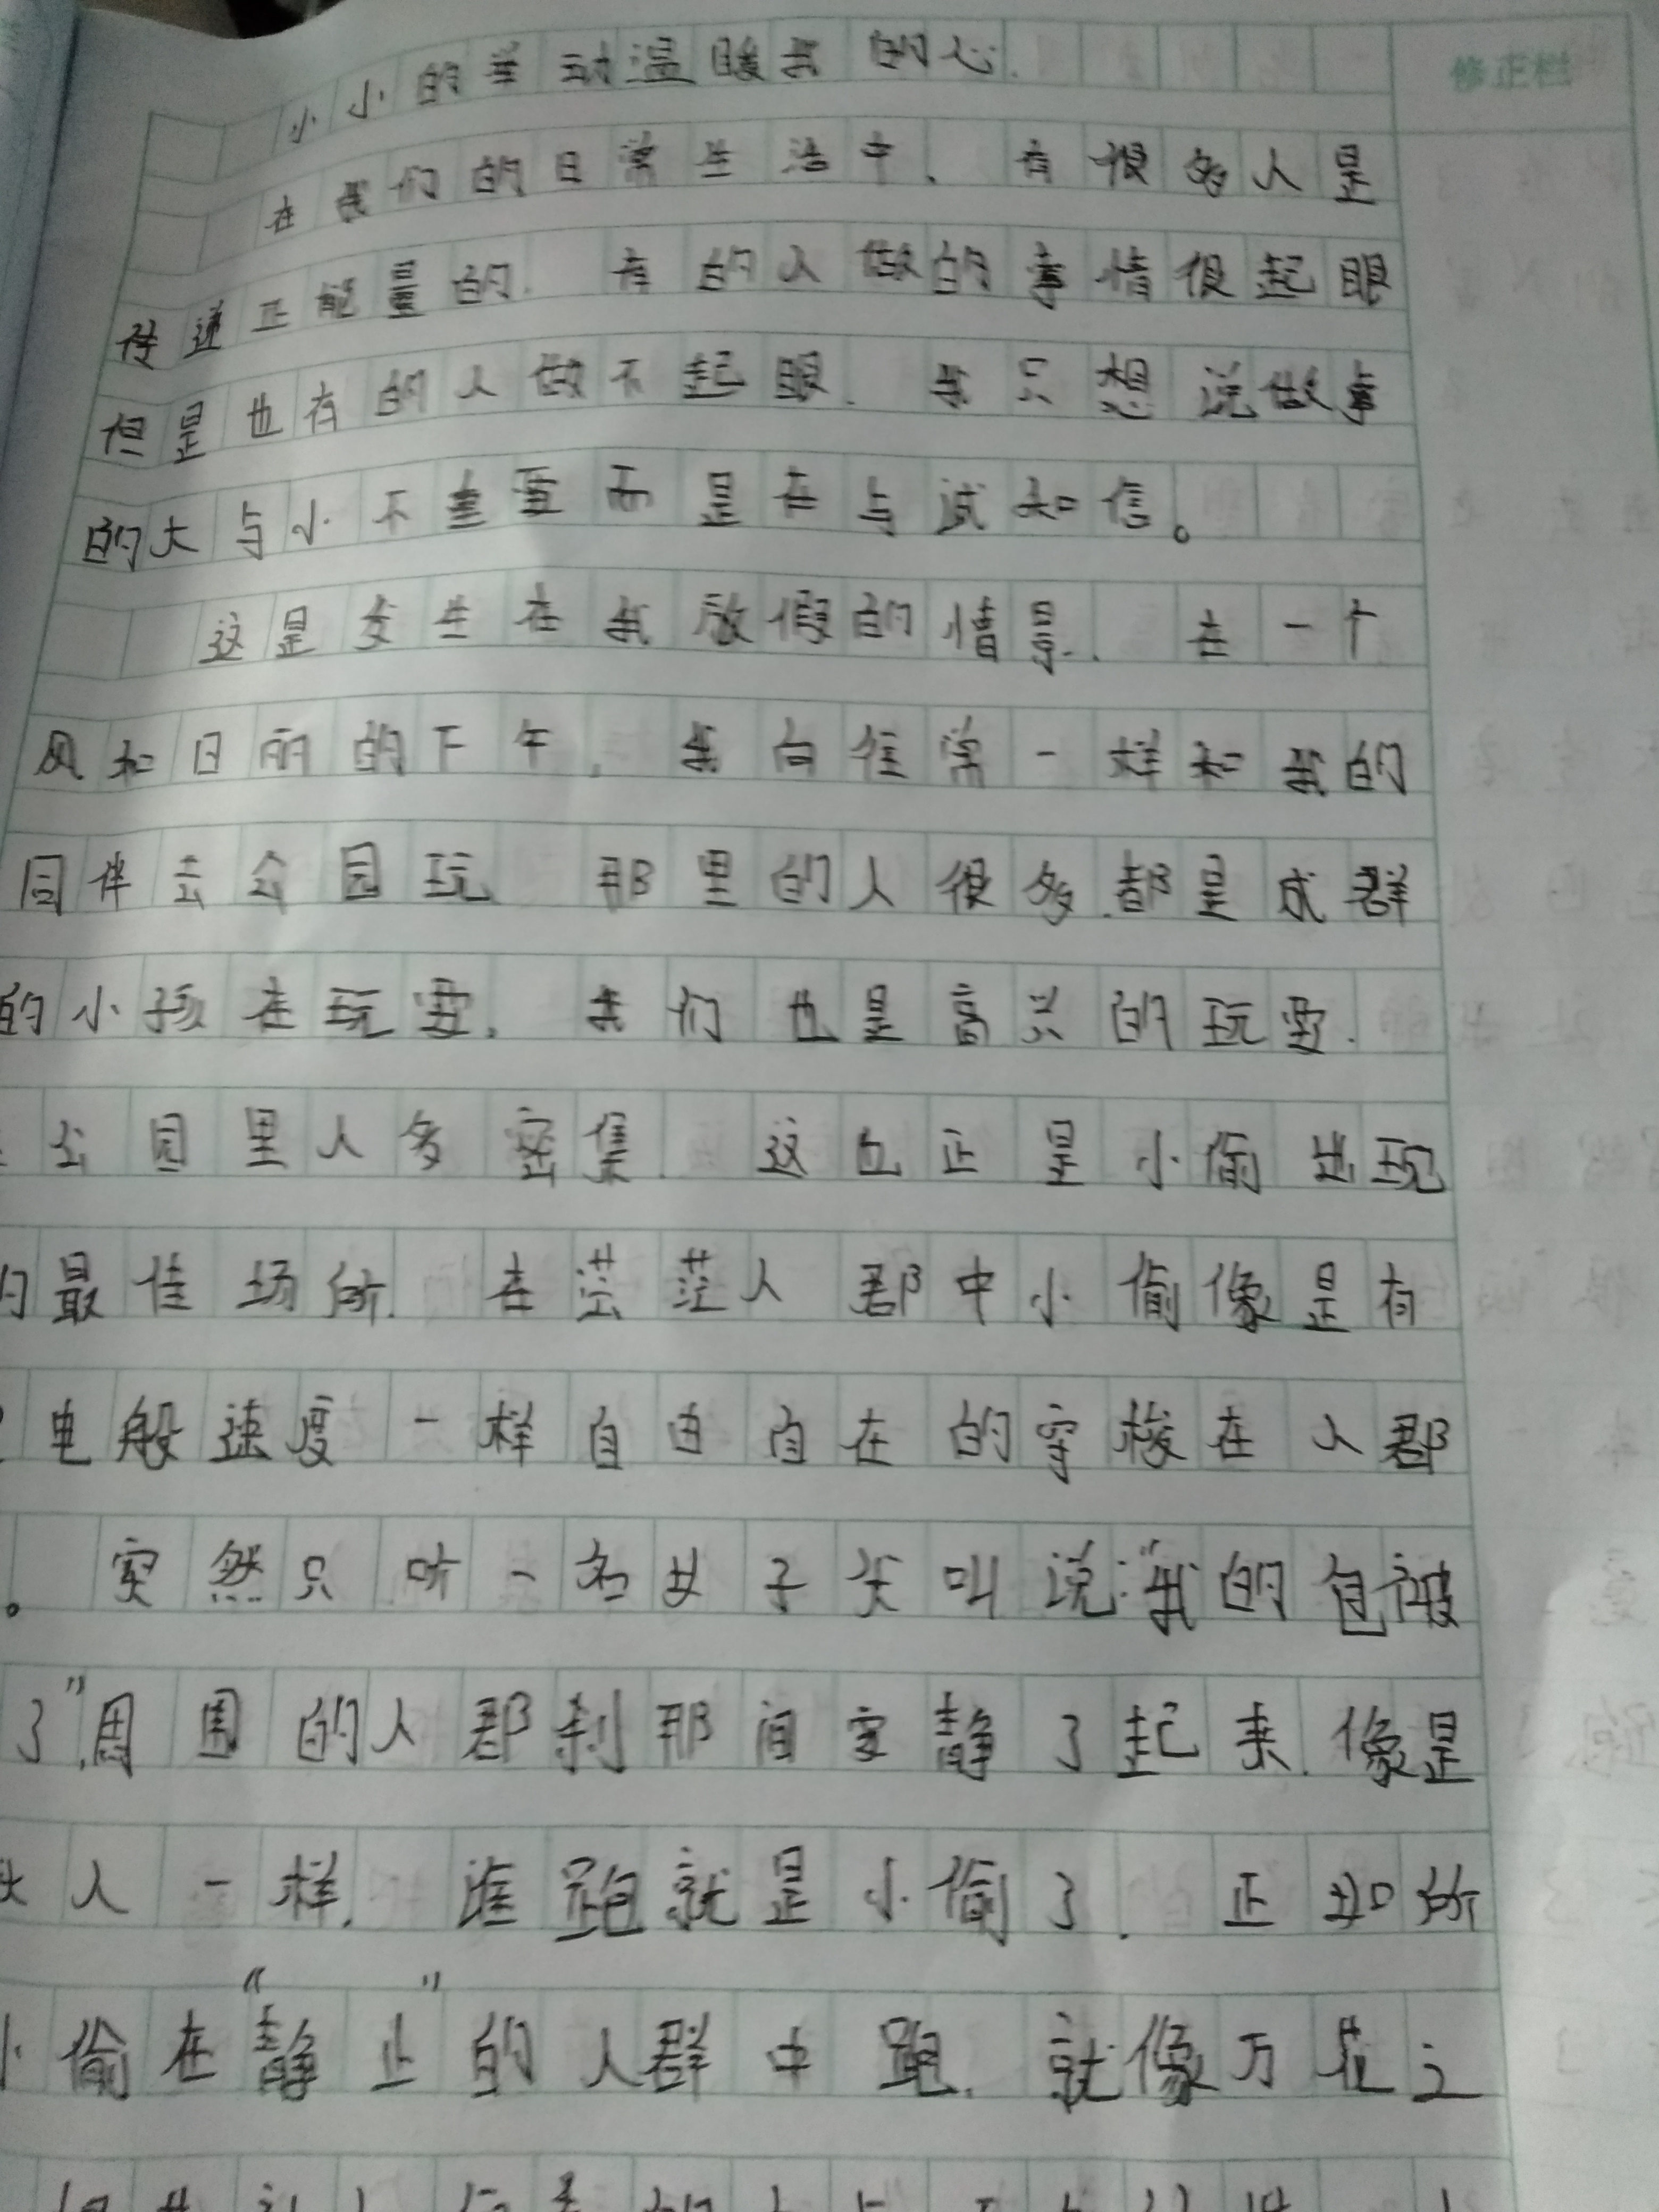 小小的举动温暖我的心
修正栏
在我们的日常生活中，有很多人是
传递正能量的，有的人做的事情很起眼
但是也有的人做不起眼，我只想说做事
的大与小不重要而是在与诚和信。
这是发生在我放假的情景，在一个
风和日丽的下午，我向往常一样和我的
同伴去公园玩 那里的人很多，都是成群
的小孩在玩耍，我们也是高兴的玩耍，
公园里人多密集，这也正是小偷出现
的最佳场所，在茫茫人郡中小偷像是有
电般速度一样自由自在的穿梭在人郡
。突然只听一名女子尖叫说：“我的包被
了”，周围的人郡刹那间安静了起来，像是
人一样，谁跑就是小偷了，正如所
小偷在“静止”的人群中跑，就像万花之